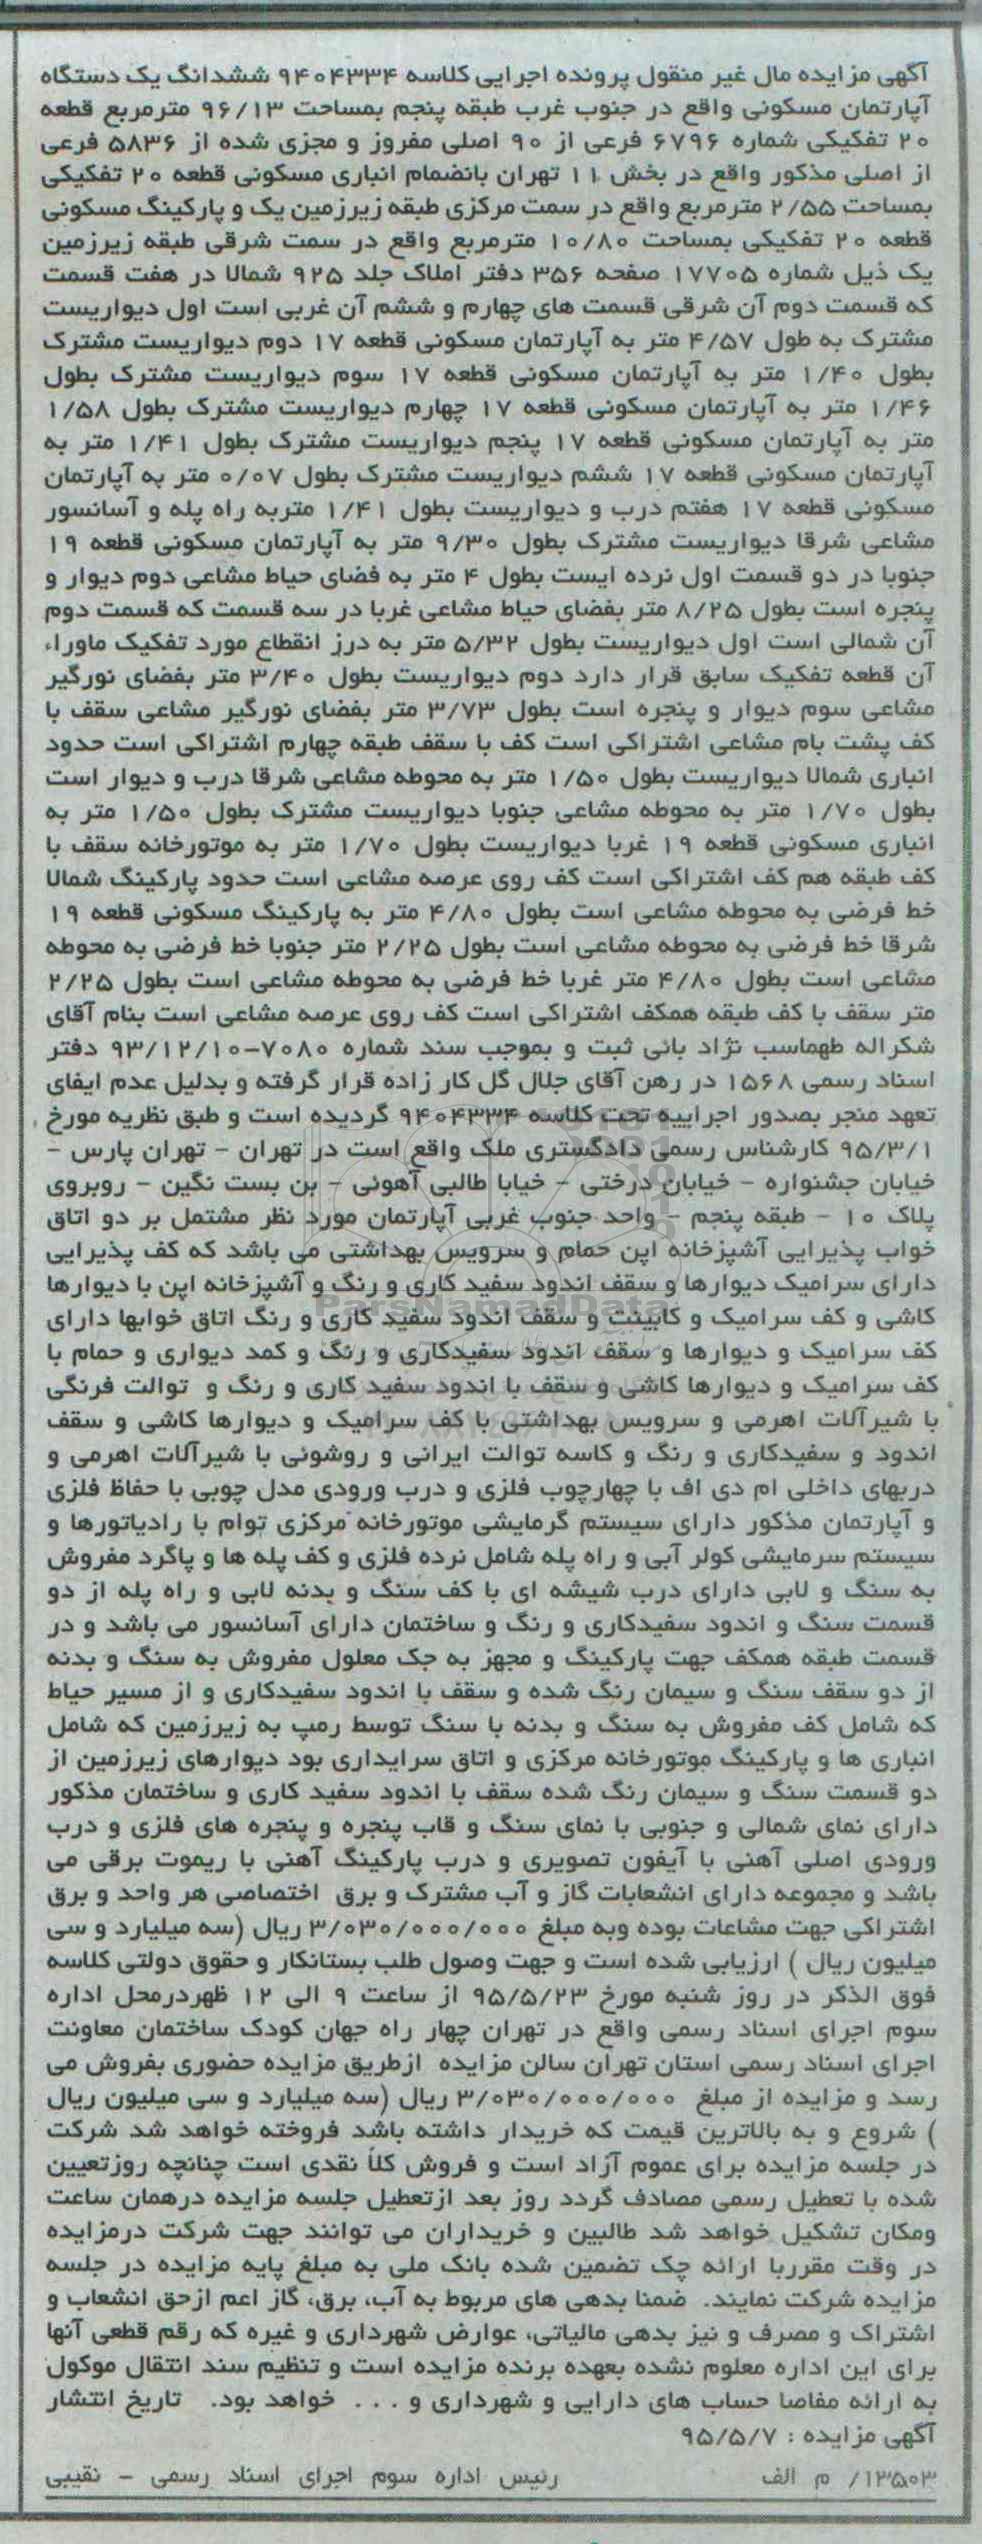 آگهی مزایده مال غیر منقول پرونده اجرایی کلاسه ۹۴۰۴۳۳۴ ششدانگ یک دستگاه
آپارتمان مسکونی واقع در جنوب غرب طبقه پنجم بمساحت ۹۶/۱۳ مترمربع قطعه
۲۰ تفکیکی شماره ۶۷۹۶ فرعی از ۹۰ اصلی مفروز و مجزی شده از ۵۸۳۶ فرعی
از اصلی مذکور واقع در بخش ۱۱ تهران بانضمام انباری مسکونی قطعه ۲۰ تفکیکی
بمساحت ۲/۵۵ مترمربع واقع در سمت مرکزی طبقه زیرزمین یک و پارکینگ مسکونی
قطعه ۲۰ تفکیکی بمساحت ۱۰/۸۰ مترمربع واقع در سمت شرقی طبقه زیرزمین
یک ذیل شماره ۱۷۷۰۵ صفحه ۳۵۶ دفتر املاک جلد ۹۲۵ شمالا در هفت قسمت
که قسمت دوم آن شرقی قسمت های چهارم و ششم آن غربی است اول دیواریست
مشترک به طول ۴/۵۷ متر به آپارتمان مسکونی قطعه ۱۷ دوم دیواریست مشترک
بطول ۱/۴۰ متر به آپارتمان مسکونی قطعه ۱۷ سوم دیواریست مشترک بطول
۱/۴۶ متر به آپارتمان مسکونی قطعه ۱۷ چهارم دیواریست مشترک بطول ۱/۵۸
متر به آپارتمان مسکونی قطعه ۱۷ پنجم دیواریست مشترک بطول ۱/۴۱ متر به
آپارتمان مسکونی قطعه ۱۷ ششم دیواریست مشترک بطول ۰/۰۷ متر به آپارتمان
مسکونی قطعه ۱۷ هفتم درب و دیواریست بطول ۱/۴۱ متربه راه پله و آسانسور
مشاعی شرقا دیواریست مشترک بطول ۹/۳۰ متر به آپارتمان مسکونی قطعه ۱۹
جنوبا در دو قسمت اول نرده ایست بطول ۴ متر به فضای حیاط مشاعی دوم دیوار و
پنجره است بطول ۸/۲۵ متر بفضای حیاط مشاعی غربا در سه قسمت که قسمت دوم
آن شمالی است اول دیواریست بطول ۵/۳۲ متر به درز انقطاع مورد تفکیک ماوراء
آن قطعه تفکیک سابق قرار دارد دوم دیواریست بطول ۳/۴۰ متر بفضای نورگیر
مشاعی سوم دیوار و پنجره است بطول ۳/۷۳ متر بفضای نورگیر مشاعی سقف با
کف پشت بام مشاعی اشتراکی است کف با سقف طبقه چهارم اشتراکی است حدود
انباری شمالا دیواریست بطول ۱/۵۰ متر به محوطه مشاعی شرقا درب و دیوار است
بطول ۱/۷۰ متر به محوطه مشاعی جنوبا دیواریست مشترک بطول ۱/۵۰ متر به
انباری مسکونی قطعه ۱۹ غربا دیواریست بطول ۱/۷۰ متر به موتورخانه سقف با
کف طبقه هم کف اشتراکی است کف روی عرصه مشاعی است حدود پارکینگ شمالا
خط فرضی به محوطه مشاعی است بطول ۴/۸۰ متر به پارکینگ مسکونی قطعه ۱۹
شرقا خط فرضی به محوطه مشاعی است بطول ۲/۲۵ متر جنوبا خط فرضی به محوطه
مشاعی است بطول ۴/۸۰ متر غربا خط فرضی به محوطه مشاعی است بطول ۲/۲۵
متر سقف با کف طبقه همکف اشتراکی است کف روی عرصه مشاعی است بنام آقای
شکراله طهماسب نژاد بائی ثبت و بموجب سند شماره ۷۰۸۰-۹۳/۱۲/۱۰ دفتر
اسناد رسمی ۱۵۶۸ در رهن آقای جلال گل کار زاده قرار گرفته و بدلیل عدم ایفای
تعهد منجر بصدور اجراییه تحت کلاسه ۹۴۰۴۳۳۴ گردیده است و طبق نظریه مورخ
۹۵/۳/۱ کارشناس رسمی دادگستری ملک واقع است در تهران - تهران پارس -
خیابان جشنواره - خیابان درختی - خیابا طالبی آهوئی - بن بست نگین - روبروی
پلاک ۱۰ - طبقه پنجم - واحد جنوب غربی آپارتمان مورد نظر مشتمل بر دو اتاق
خواب پذیرایی آشپزخانه اپن حمام و سرویس بهداشتی می باشد که کف پذیرایی
دارای سرامیک دیوارها و سقف اندود سفید کاری و رنگ و آشپزخانه اپن با دیوارها
ParsNamadData
کاشی و کف سرامیک و کابینت و سقف اندود سفید کاری و رنگ اتاق خوابها دارای
کف سرامیک و دیوارها و سقف اندود سفیدکاری و رنگ و کمد دیواری و حمام با
کف سرامیک و دیوارها کاشی و سقف با اندود سفید کاری و رنگ و توالت فرنگی
با شیرآلات اهرمی و سرویس بهداشتی با کف سرامیک و دیوارها کاشی و سقف
اندود و سفیدکاری و رنگ و کاسه توالت ایرانی و روشوئی با شیرآلات اهرمی و
دربهای داخلی ام دی اف با چهارچوب فلزی و درب ورودی مدل چوبی با حفاظ فلزی
و آپارتمان مذکور دارای سیستم گرمایشی موتورخانه مرکزی توام با رادیاتورها و
سیستم سرمایشی کولر آبی و راه پله شامل نرده فلزی و کف پله ها و پاگرد مفروش
به سنگ و لابی دارای درب شیشه ای با کف سنگ و بدنه لابی و راه پله از دو
قسمت سنگ و اندود سفیدکاری و رنگ و ساختمان دارای آسانسور می باشد و در
قسمت طبقه همکف جهت پارکینگ و مجهز به جک معلول مفروش به سنگ و بدنه
از دو سقف سنگ و سیمان رنگ شده و سقف با اندود سفیدکاری و از مسیر حیاط
که شامل کف مفروش به سنگ و بدنه با سنگ توسط رمپ به زیرزمین که شامل
انباری ها و پارکینگ موتورخانه مرکزی و اتاق سرایداری بود دیوارهای زیرزمین از
دو قسمت سنگ و سیمان رنگ شده سقف با اندود سفید کاری و ساختمان مذکور
دارای نمای شمالی و جنوبی با نمای سنگ و قاب پنجره و پنجره های فلزی و درب
ورودی اصلی آهنی با آیفون تصویری و درب پارکینگ آهنی با ریموت برقی می
باشد و مجموعه دارای انشعابات گاز و آب مشترک و برق اختصاصی هر واحد و برق
اشتراکی جهت مشاعات بوده وبه مبلغ ۳/۰۳۰/۰۰۰/۰۰۰ ریال (سه میلیارد و سی
میلیون ریال ) ارزیابی شده است و جهت وصول طلب بستانکار و حقوق دولتی کلاسه
فوق الذکر در روز شنبه مورخ ۹۵/۵/۲۳ از ساعت ۹ الی ۱۲ ظهردرمحل اداره
سوم اجرای اسناد رسمی واقع در تهران چهار راه جهان کودک ساختمان معاونت
اجرای اسناد رسمی استان تهران سالن مزایده ازطریق مزایده حضوری بفروش می
رسد و مزایده از مبلغ ۳/۰۳۰/۰۰۰/۰۰۰ ریال (سه میلیارد و سی میلیون ریال
) شروع و به بالاترین قیمت که خریدار داشته باشد فروخته خواهد شد شرکت
در جلسه مزایده برای عموم آزاد است و فروش کلاً نقدی است چنانچه روزتعیین
شده با تعطیل رسمی مصادف گردد روز بعد ازتعطیل جلسه مزایده درهمان ساعت
ومکان تشکیل خواهد شد طالبین و خریداران می توانند جهت شرکت درمزایده
در وقت مقرربا ارائه چک تضمین شده بانک ملی به مبلغ پایه مزایده در جلسه
مزایده شرکت نمایند. ضمنا بدهی های مربوط به آب، برق، گاز اعم ازحق انشعاب و
اشتراک و مصرف و نیز بدهی مالیاتی، عوارض شهرداری و غیره که رقم قطعی آنها
برای این اداره معلوم نشده بعهده برنده مزایده است و تنظیم سند انتقال موکول
به ارائه مفاصا حساب های دارایی و شهرداری و . . . خواهد بود. تاریخ انتشار
آگهی مزایده : ۹۵/۵/۷
۱۳۵۰۳/ م الف رئیس اداره سوم اجرای اسناد رسمی - نقیبی